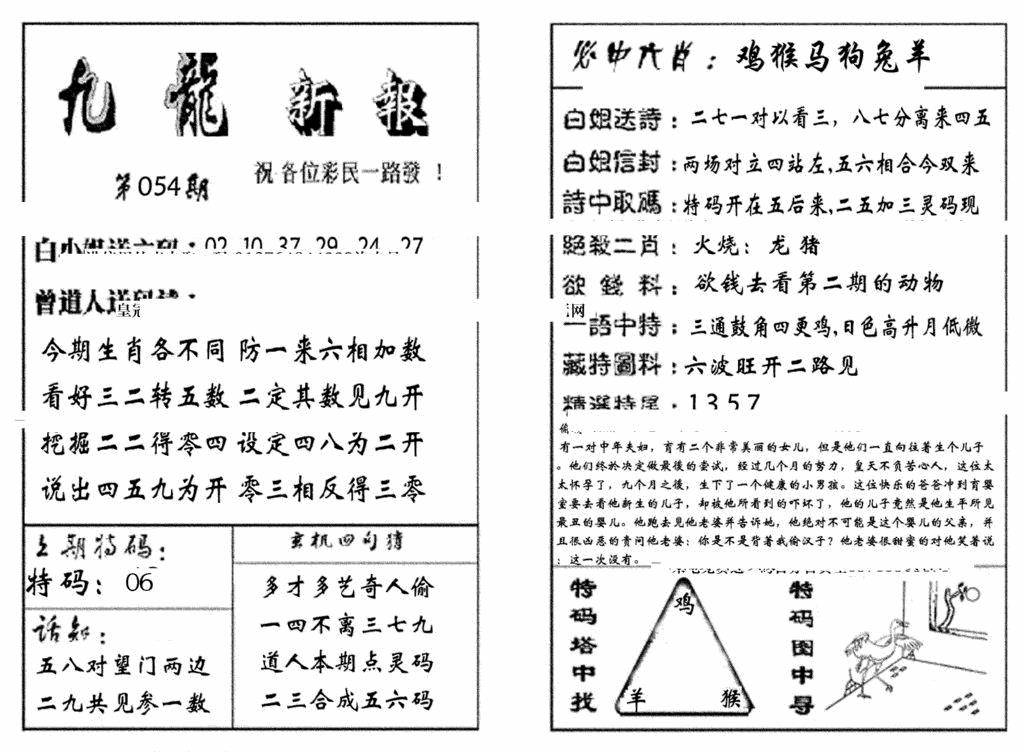 九龍新報
第054期
祝各位彩民一路發！
02 10 37 29 24 27
曾道人送
今期生肖各不同 防一来六相加数
看好三二转五数 二定其数见九开
挖掘二二得零四 设定四八为二开
说出四五九为开 零三相反得三零
上期特码：
特码： 06
话知：
五八对望门两边
二九共见参一数
玄机四句猜
多才多艺奇人偷
一四不离三七九
道人本期点灵码
二三合成五六码
必中六肖：鸡猴马狗兔羊
白姐送詩：二七一对以看三，八七分离来四五
白姐信封：两场对立四站左,五六相合今双来
詩中取碼：特码开在五后来,二五加三灵码现
絕殺二肖：火烧：龙猪
欲錢料：欲钱去看第二期的动物
一語中特：三通鼓角四更鸡,日色高升月低微
藏特圖料：六波旺开二路见
1357
有一对中年夫妇，育有二个非常美丽的女儿，但是他们一直向往著生个儿子
。他们终於决定做最後的尝试，经过几个月的努力，皇天不负苦心人，这位太
太怀孕了，九个月之後，生下了一个健康的小男孩。这位快乐的爸爸冲到育婴
室要去看他新生的儿子，却被他所看到的吓坏了，他的儿子竟然是他生平所见
最丑的婴儿。他跑去见他老婆并告诉她，他绝对不可能是这个婴儿的父亲，并
且很凶恶的责问他老婆：你是不是背著我偷汉子？他老婆很甜蜜的对他笑著说
：这一次没有。
特码塔中找
鸡
羊
猴
特码图中寻